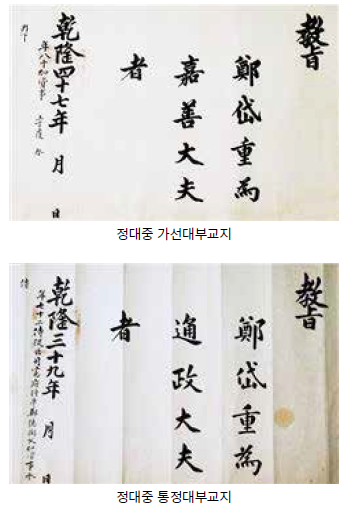 教旨
鄭岱重為
嘉善大夫
者
乾隆四十七年 月 日
年八十加資事 承
정대중 가선대부교지
教旨
鄭岱重為
通政大夫
者
乾隆三十九年 月 日
정대중 통정대부교지